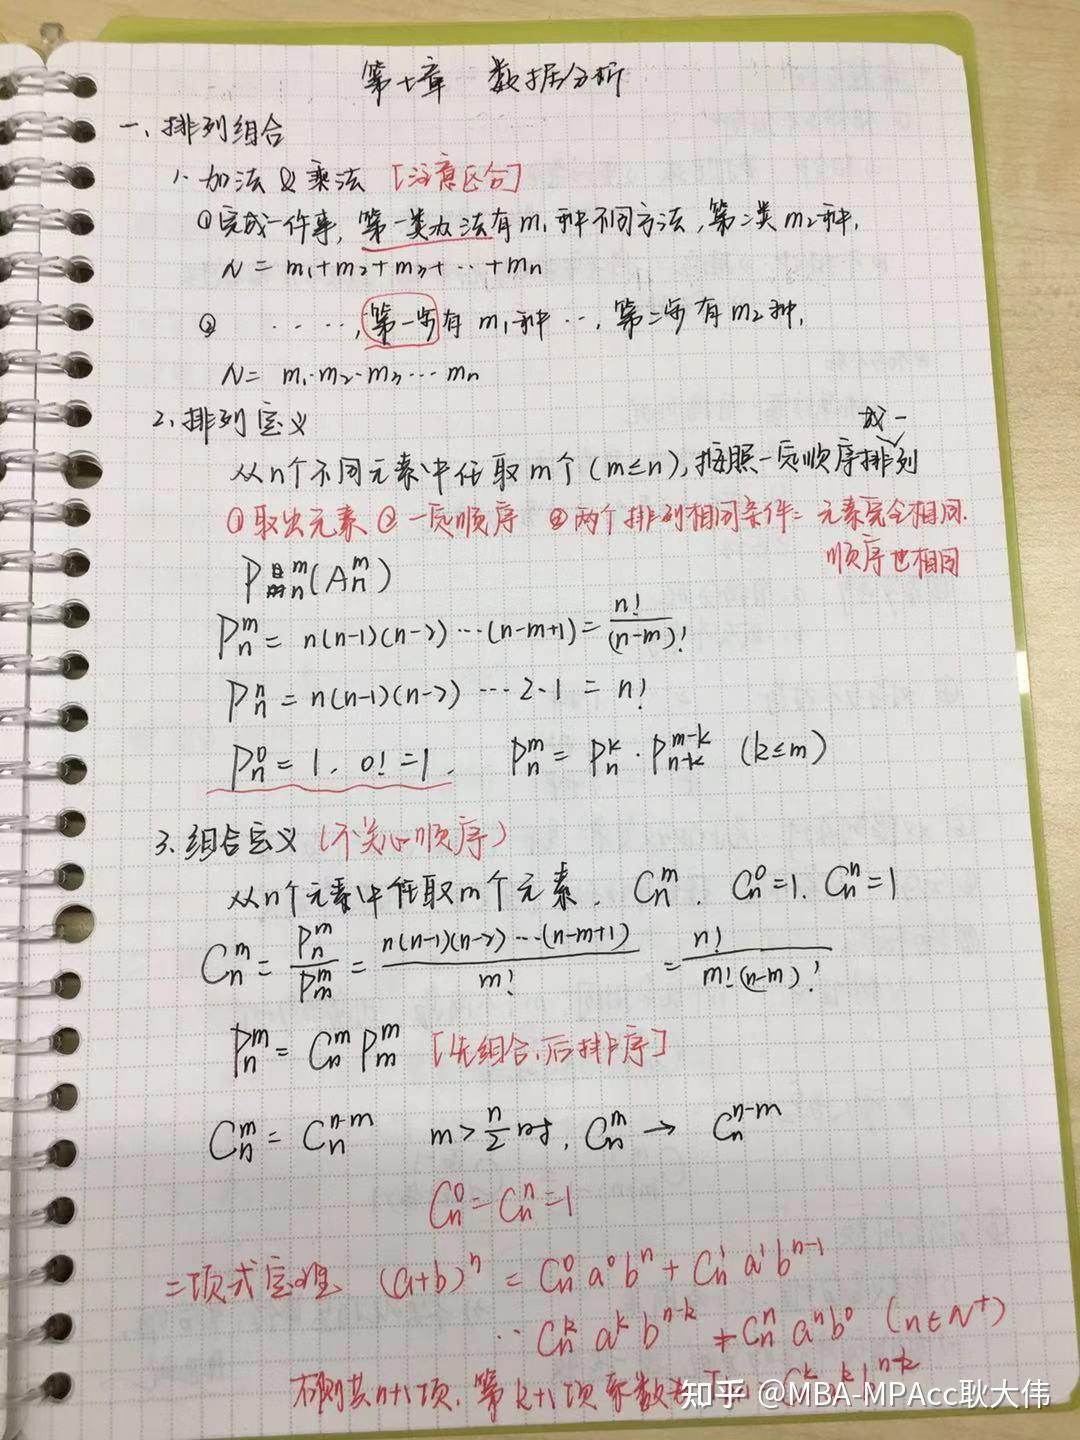 第七章 数据分析
一、排列组合
1. 加法 & 乘法 [注意区分]
①完成一件事, 第一类办法有m₁种不同方法, 第二类m₂种.
N = m₁+m₂+m₃+…+mₙ
② ……, 第一步有m₁种…, 第二步有m₂种,
N= m₁·m₂·m₃…mₙ
2. 排列定义
成一
从n个不同元素中任取m个(m≤n), 按照一定顺序排列
①取出元素 ②一定顺序 ③两个排列相同条件= 元素完全相同.
顺序也相同
Pₙᵐ(Aₙᵐ)
Pₙᵐ = n(n-1)(n-2)…(n-m+1) = n!/(n-m)!
Pₙⁿ = n(n-1)(n-2)…2·1 = n!
Pₙ⁰ = 1. 0! = 1. Pₙᵐ = Pₙᵏ · Pₙ₋ₖᵐ⁻ᵏ (k≤m)
3. 组合定义 (不关心顺序)
从n个元素中任取m个元素. Cₙᵐ. Cₙ⁰=1. Cₙⁿ=1
Cₙᵐ = Pₙᵐ/Pₘᵐ = n(n-1)(n-2)…(n-m+1)/m! = n!/m!(n-m)!
Pₙᵐ = CₙᵐPₘᵐ [先组合,后排序]
Cₙᵐ = Cₙⁿ⁻ᵐ m > n/2 时, Cₙᵐ → Cₙⁿ⁻ᵐ
Cₙ⁰ = Cₙⁿ = 1
二项式定理 (a+b)ⁿ = Cₙ⁰a⁰bⁿ + Cₙ¹a¹bⁿ⁻¹
… Cₙᵏaᵏbⁿ⁻ᵏ + Cₙⁿaⁿb⁰ (n∈N⁺)
共n+1项, 第k+1项系数为
知乎 @MBA-MPAcc耿大伟